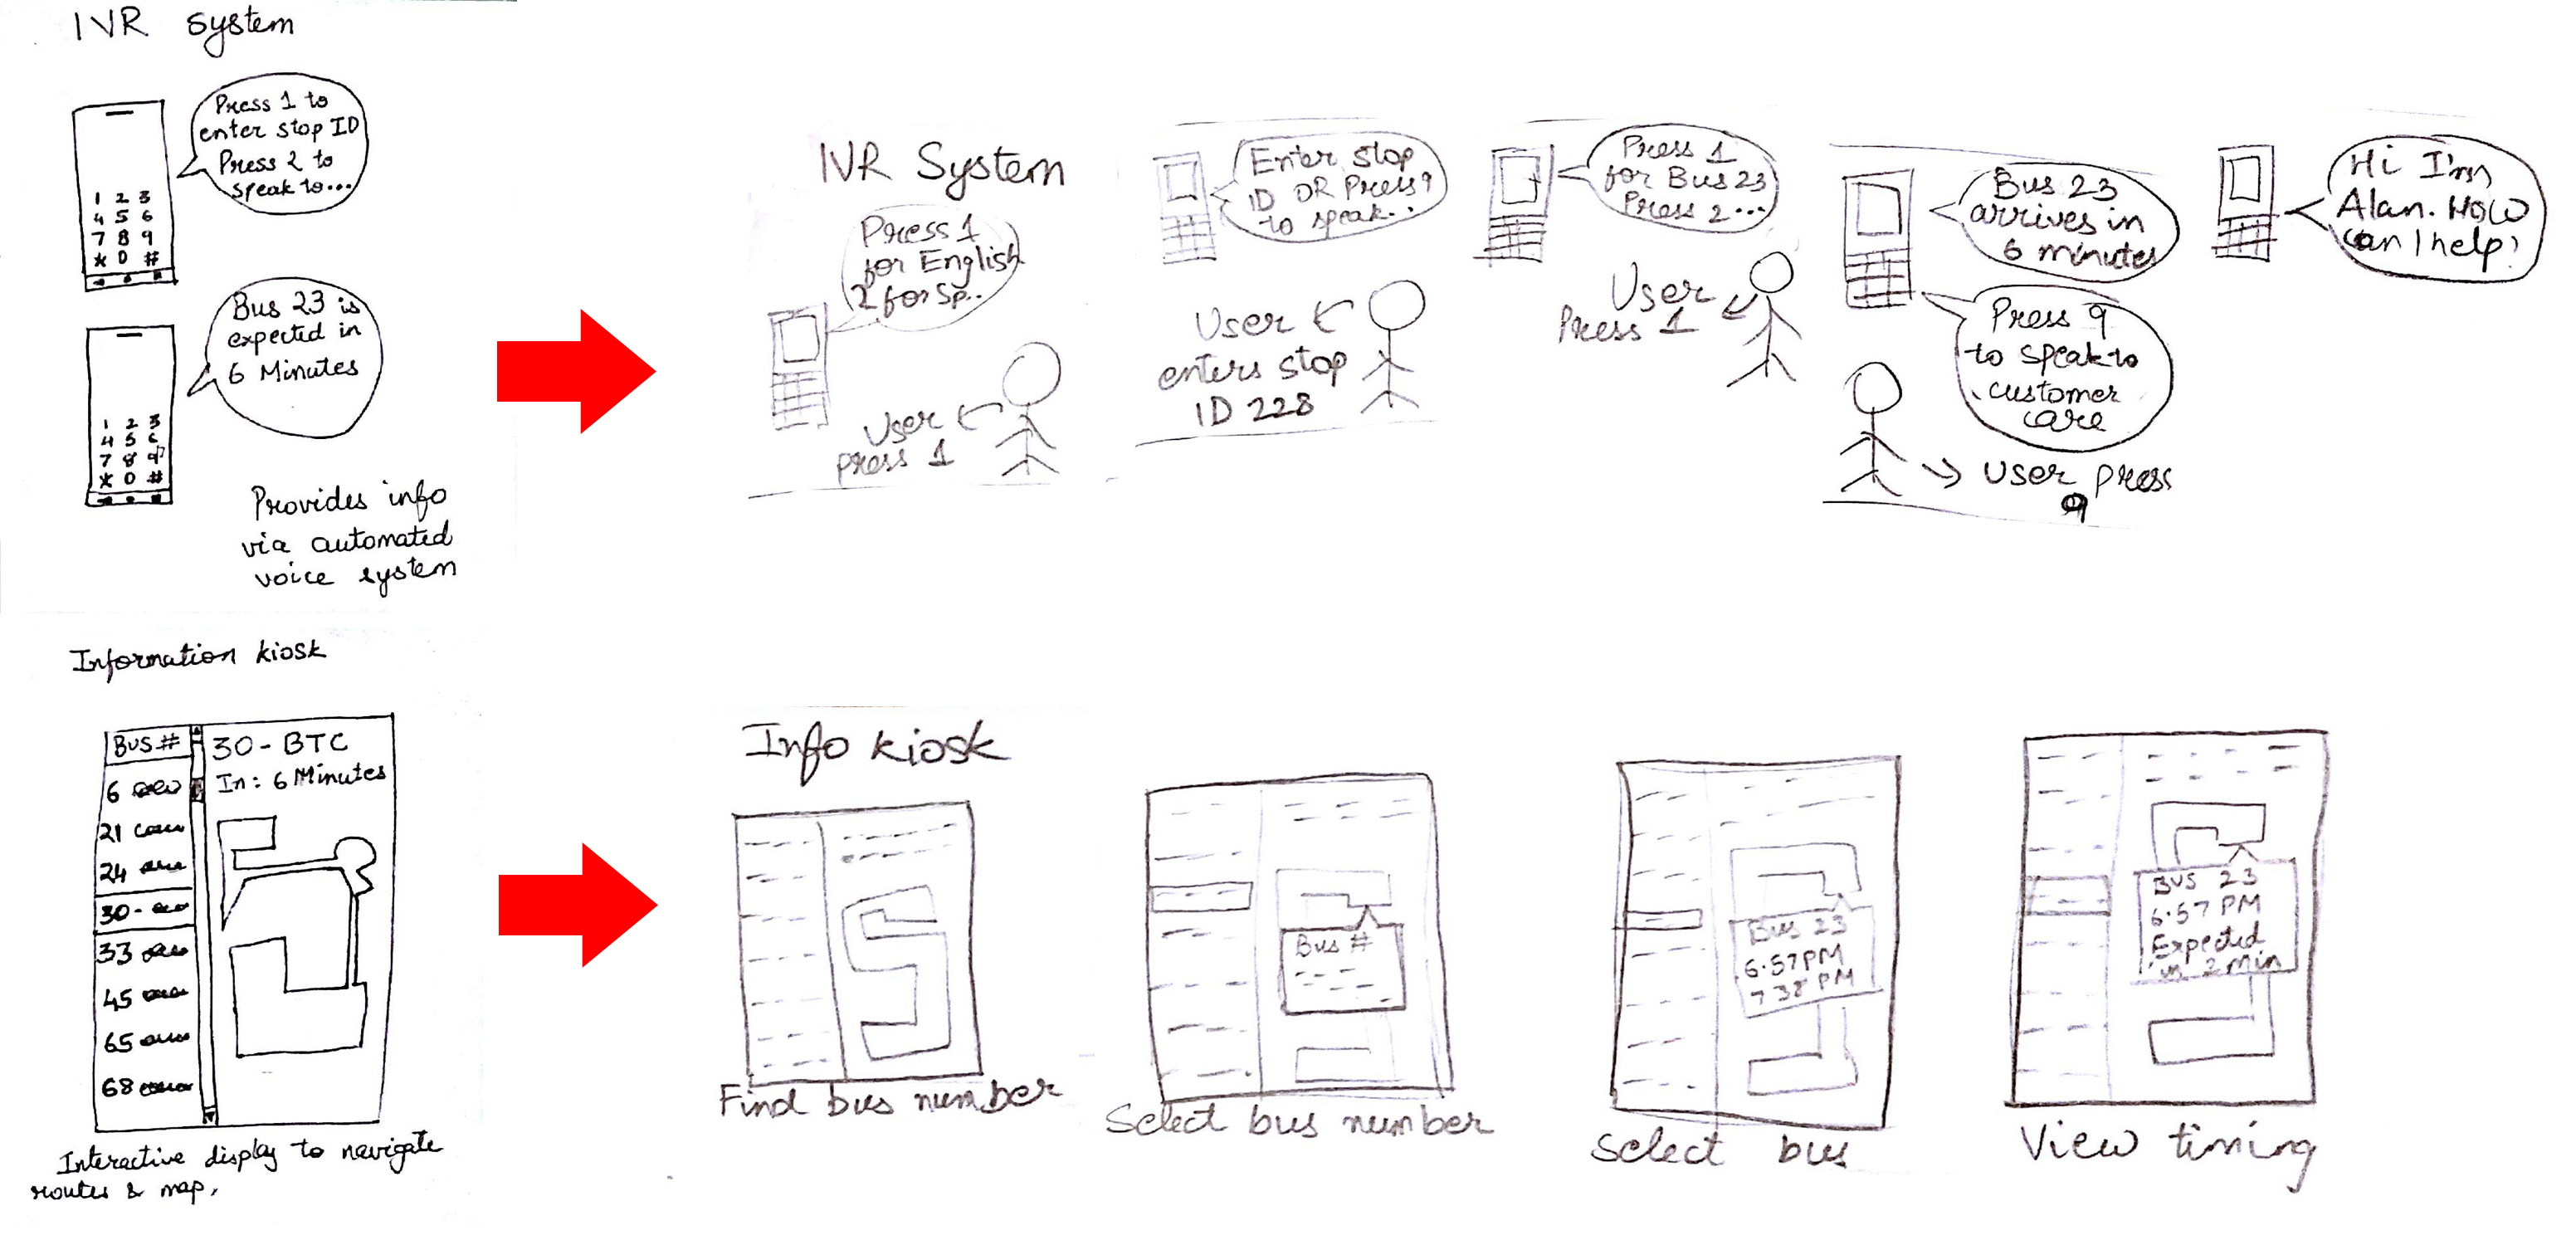 IVR System
Press 1 to
enter stop ID
Press 2 to
speak to...
1 2 3
4 5 6
7 8 9
* 0 #
Bus 23 is
expected in
6 Minutes
1 2 3
4 5 6
7 8 9
* 0 #
Provides info
via automated
voice system
IVR System
Press 1
for English
2 for Sp..
User
press 1
Enter stop
ID OR Press 9
to speak...
User
enters stop
ID 228
Press 1
for Bus 23
Press 2...
User
Press 1
Bus 23
arrives in
6 minutes
Press 9
to speak to
customer
care
User press
9
Hi I'm
Alan. How
can I help?
Information kiosk
Bus #
6
21
24
30-
33
45
65
68
30-BTC
In: 6 Minutes
Interactive display to navigate
routes & map.
Info kiosk
Find bus number
Bus #
Select bus number
Bus 23
6.57 PM
7 38 PM
Select bus
Bus 23
6.57 PM
Expected
in 2 min
View timing